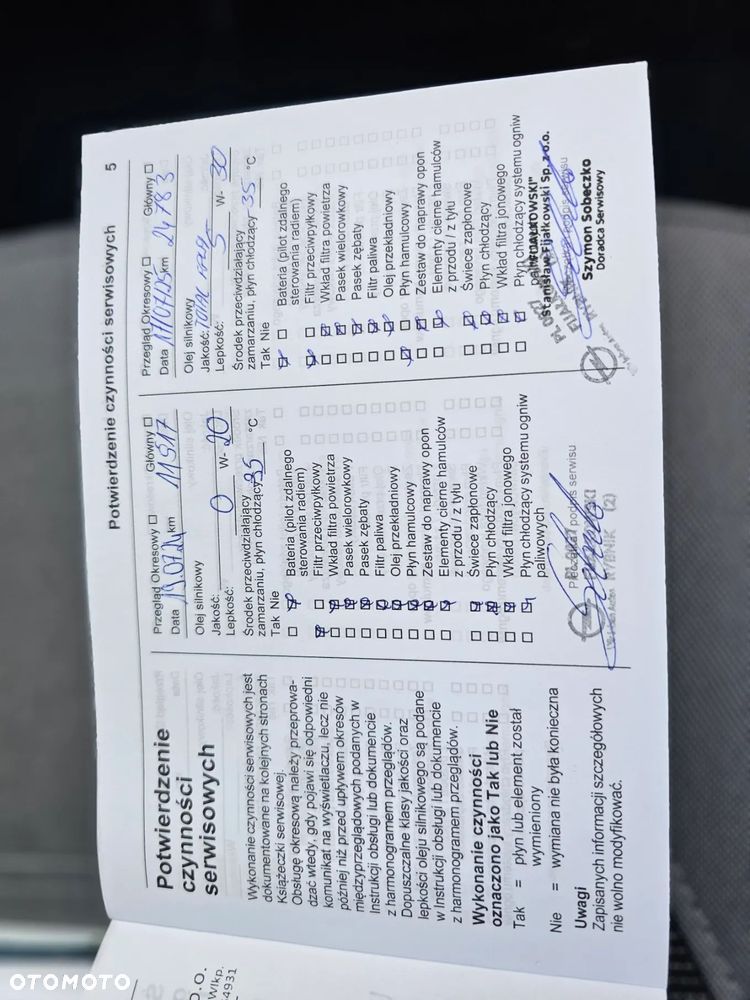 5
Potwierdzenie czynności serwisowych
Potwierdzenie
czynności
serwisowych
Wykonanie czynności serwisowych jest
dokumentowane na kolejnych stronach
Książeczki serwisowej.
Obsługę okresową należy przeprowa-
dzać wtedy, gdy pojawi się odpowiedni
komunikat na wyświetlaczu, lecz nie
później niż przed upływem okresów
międzyprzeglądowych podanych w
Instrukcji obsługi lub dokumencie
z harmonogramem przeglądów.
Dopuszczalne klasy jakości oraz
lepkości oleju silnikowego są podane
w Instrukcji obsługi lub dokumencie
z harmonogramem przeglądów.
Wykonanie czynności
oznaczono jako Tak lub Nie
Tak = płyn lub element został
wymieniony
Nie = wymiana nie była konieczna
Uwagi
Zapisanych informacji szczegółowych
nie wolno modyfikować.
Przegląd Okresowy Główny
Data km 11517
Olej silnikowy
Jakość:
Lepkość: 0 W- 20
Środek przeciwdziałający
zamarzaniu, płyn chłodzący -35 °C
Tak Nie
Bateria (pilot zdalnego
sterowania radiem)
Filtr przeciwpyłkowy
Wkład filtra powietrza
Pasek wielorowkowy
Pasek zębaty
Filtr paliwa
Olej przekładniowy
Płyn hamulcowy
Zestaw do naprawy opon
Elementy cierne hamulców
z przodu / z tyłu
Świece zapłonowe
Płyn chłodzący
Wkład filtra jonowego
Płyn chłodzący systemu ogniw
paliwowych
Pieczątka i podpis serwisu
RYBNIK (2)
Przegląd Okresowy Główny
Data km 24783
Olej silnikowy
Jakość:
Lepkość: 5 W- 30
Środek przeciwdziałający
zamarzaniu, płyn chłodzący -35 °C
Tak Nie
Bateria (pilot zdalnego
sterowania radiem)
Filtr przeciwpyłkowy
Wkład filtra powietrza
Pasek wielorowkowy
Pasek zębaty
Filtr paliwa
Olej przekładniowy
Płyn hamulcowy
Zestaw do naprawy opon
Elementy cierne hamulców
z przodu / z tyłu
Świece zapłonowe
Płyn chłodzący
Wkład filtra jonowego
Płyn chłodzący systemu ogniw
"FIJAŁKOWSKI"
Stanisław Fijałkowski Sp. z o.o.
podpis serwisu
Szymon Sobeczko
Doradca Serwisowy
o.o.
Wlkp.
-4931
OTOMOTO